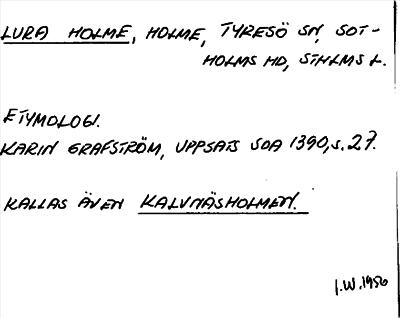 LURA HOLME, HOLME, TYRESÖ SN, SOT-
HOLMS HD, STHLMS L.
ETYMOLOGI.
KARIN GRAFSTRÖM, UPPSATS SOA 1390, S. 27.
KALLAS ÄVEN KALVNÄSHOLMEN.
I.W. 1956